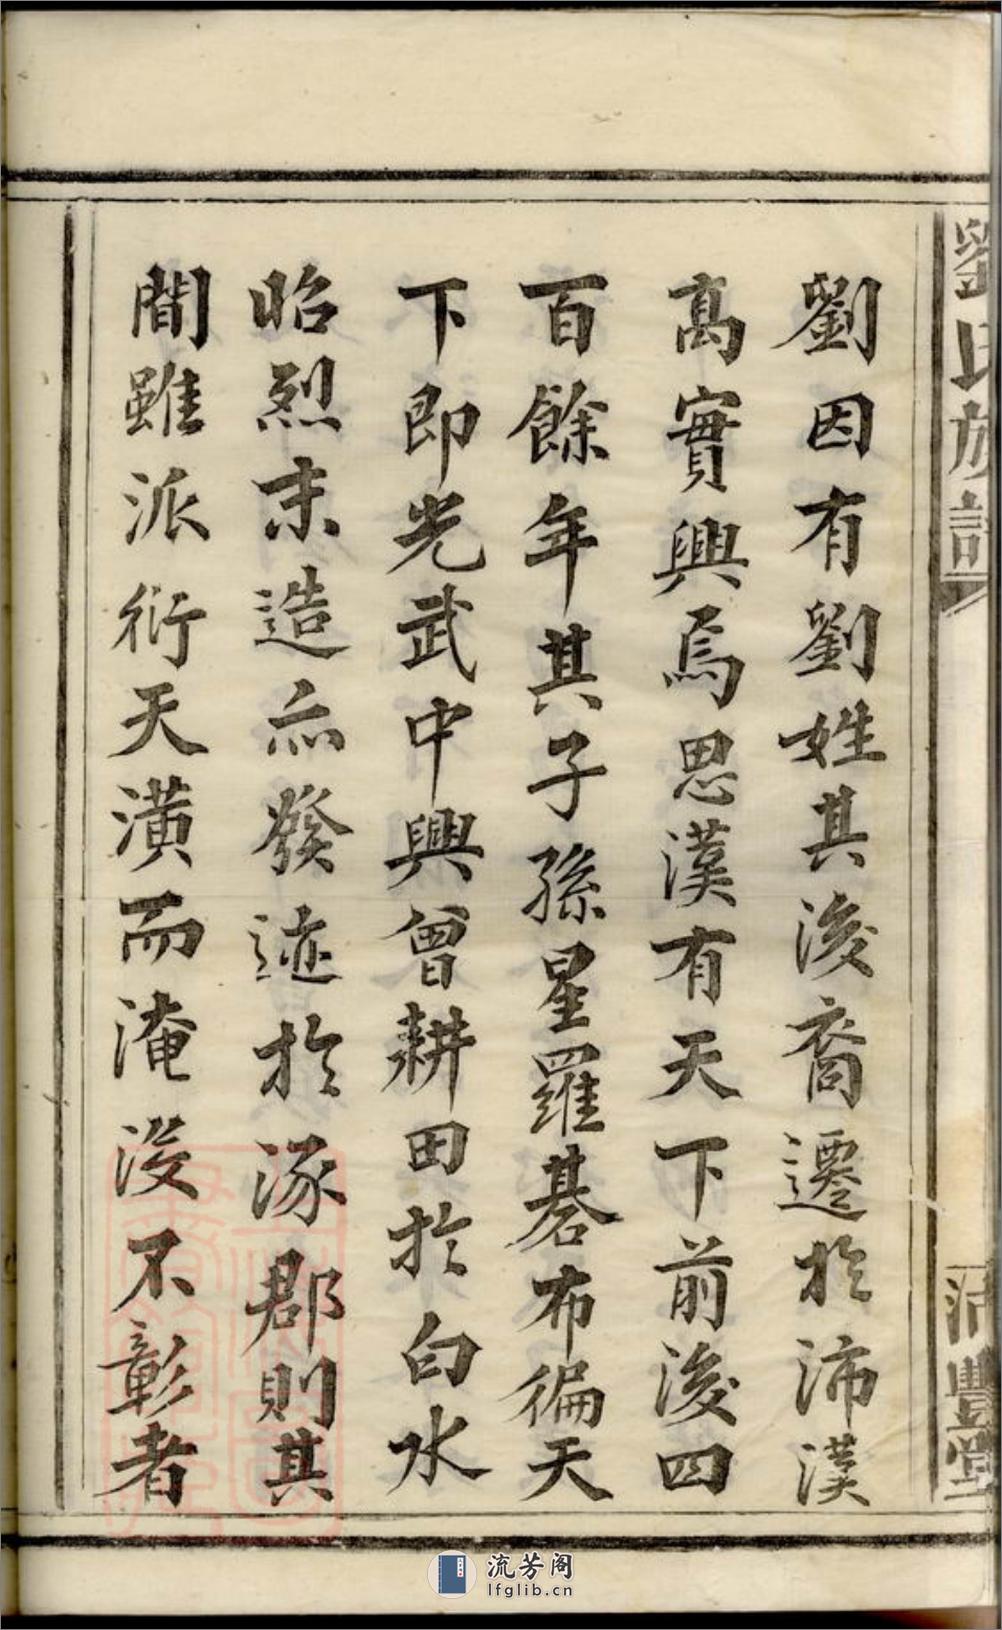 劉氏族譜
沛豐堂
劉因有劉姓其後裔遷於沛漢
高實興焉思漢有天下前後四
百餘年其子孫星羅碁布徧天
下即光武中興曾耕田於白水
昭烈末造亦發迹於涿郡則其
間雖派衍天潢而淹沒不彰者
流芳阁
lfglib.cn